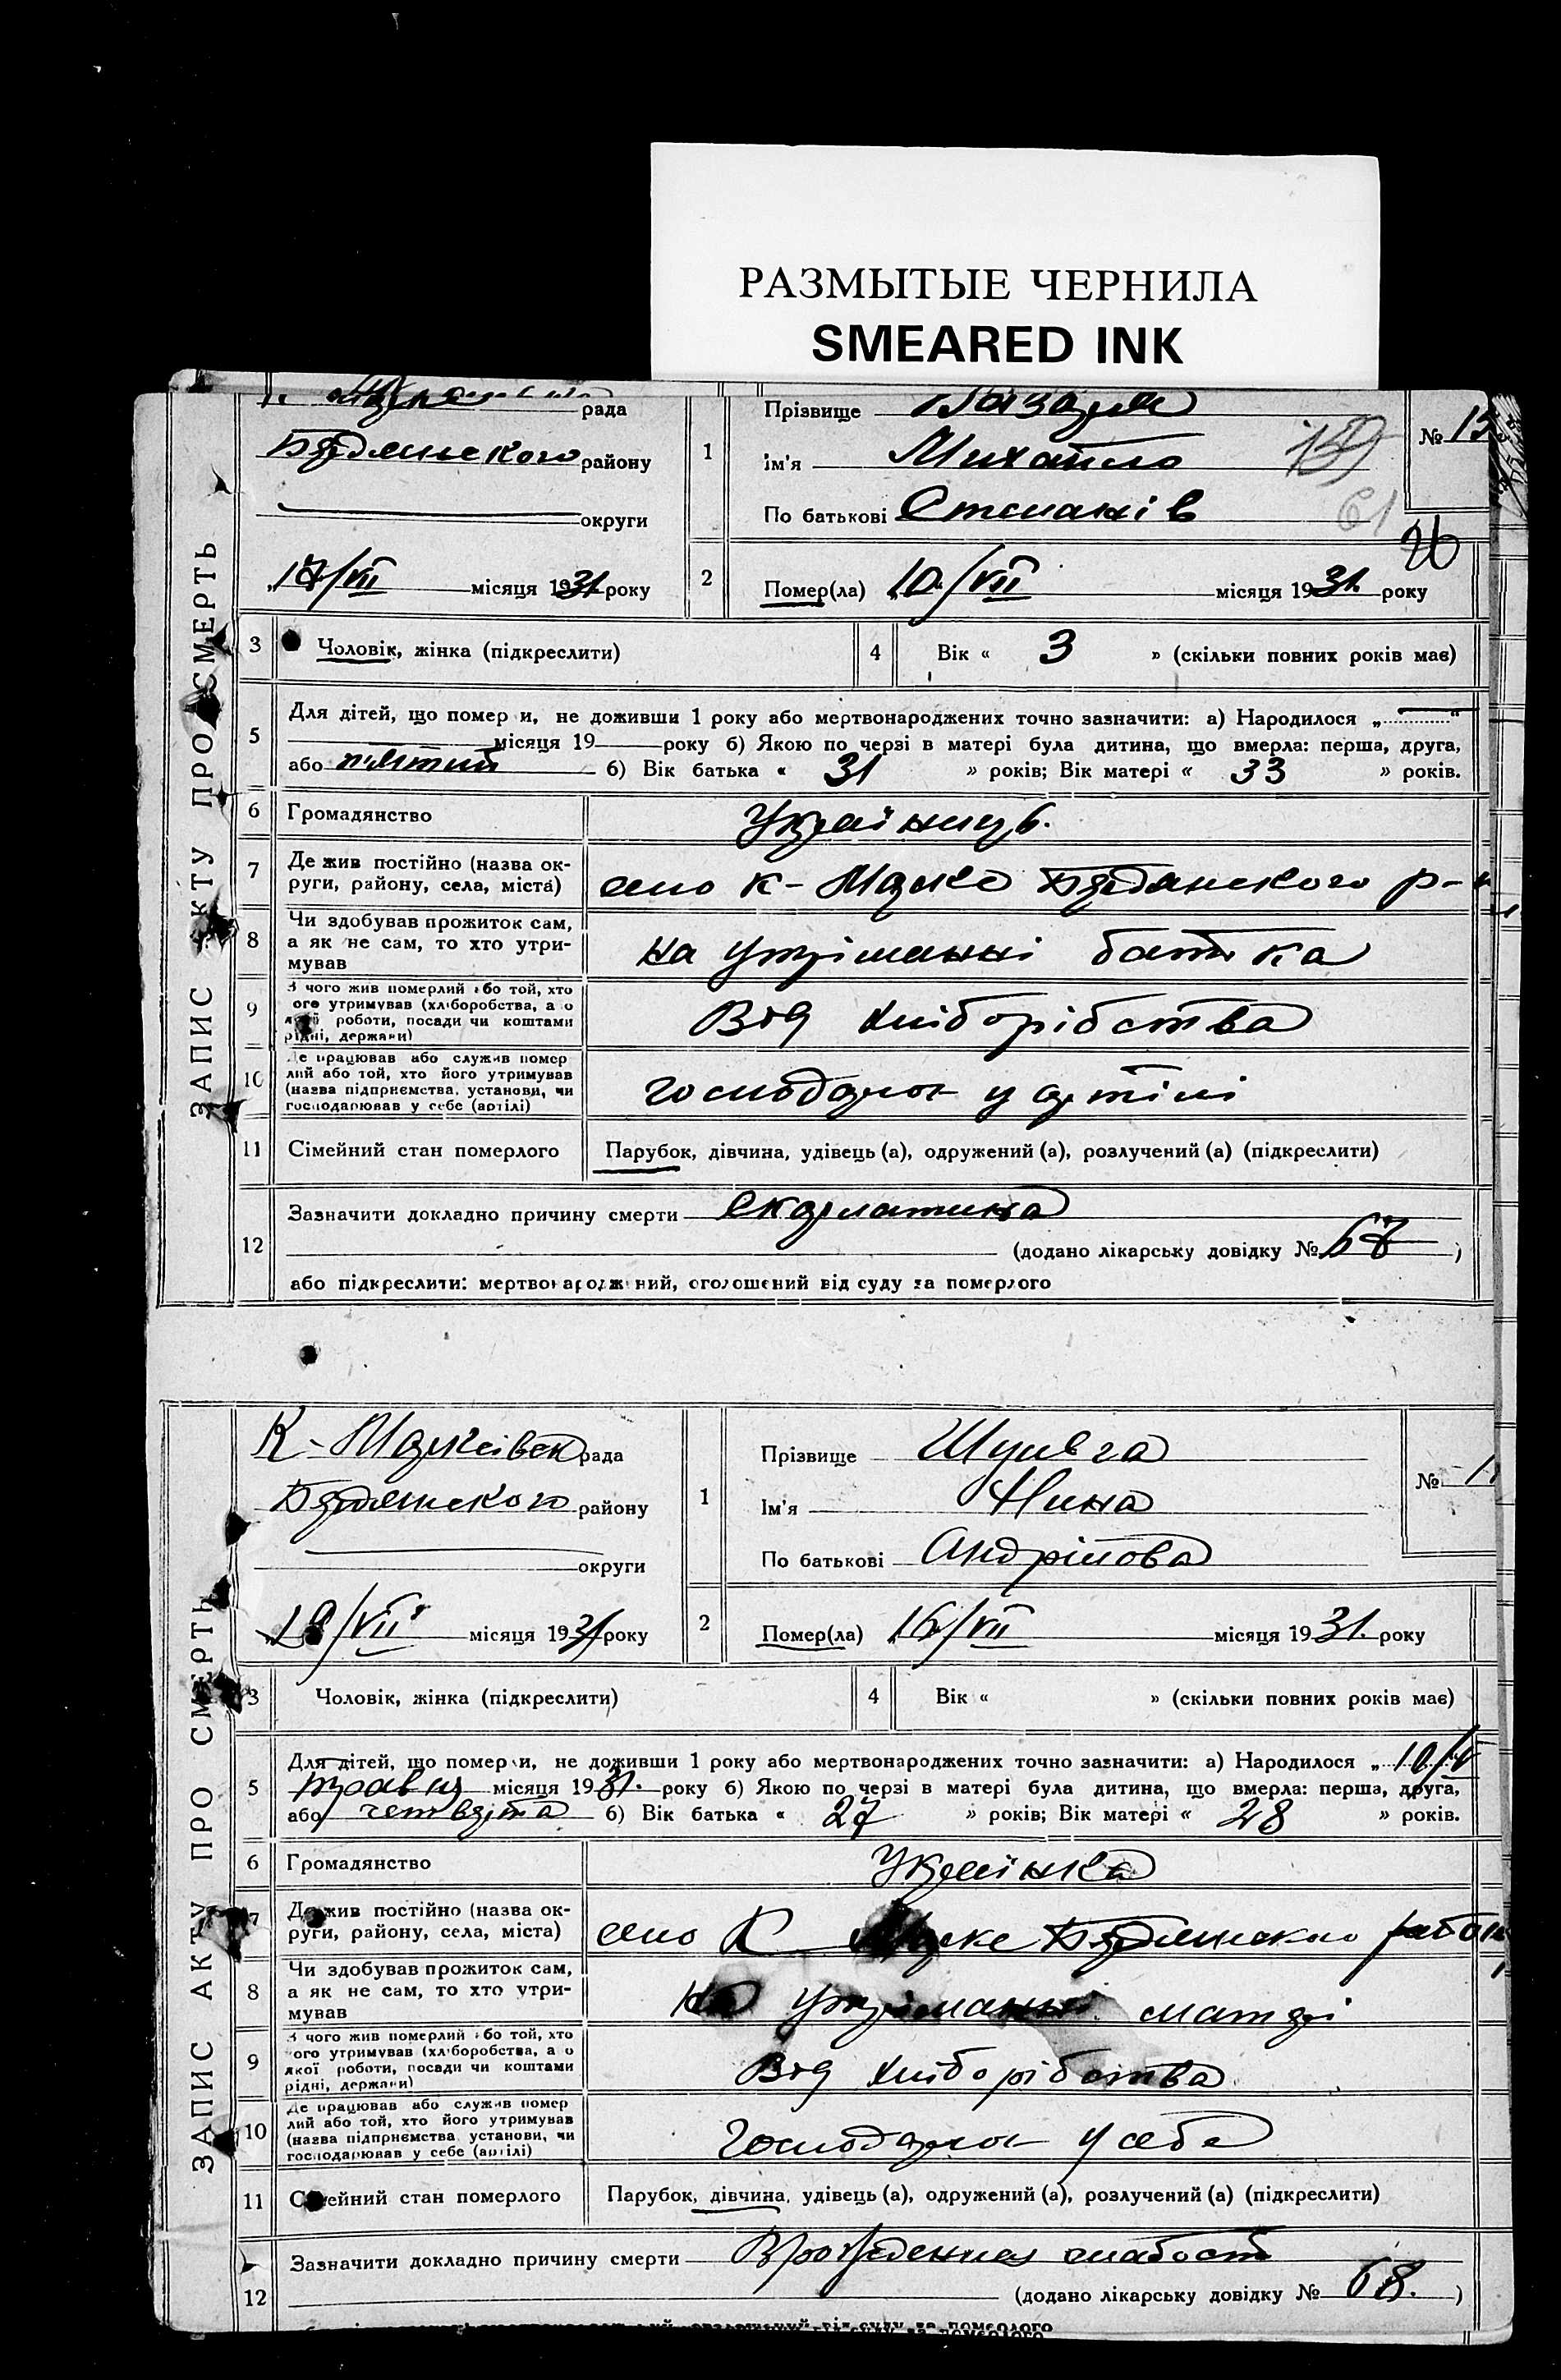 РАЗМЫТЫЕ ЧЕРНИЛА
SMEARED INK
ЗАПИС АКТУ ПРО СМЕРТЬ
рада
району
округи
"17/VII місяця 1931 року
1 Прізвище
Ім'я Михайло
По батькові Степанів
№ 15
61
26
2 Помер(ла) 10/VII місяця 1931. року
3 Чоловік, жінка (підкреслити)
4 Вік « 3 » (скільки повних років має)
5 Для дітей, що помер и, не доживши 1 року або мертвонароджених точно зазначити: а) Народилося „
місяця 19 року б) Якою по черзі в матері була дитина, що вмерла: перша, друга,
або п'ятий б) Вік батька « 31 » років; Вік матері « 33 » років.
6 Громадянство Українець.
7 Де жив постійно (назва ок-
руги, району, села, міста)
село К-
8 Чи здобував прожиток сам,
а як не сам, то хто утри-
мував
на утріманні батька
9 З чого жив померлий або той, хто
ого утримував (хліборобства, а о
якої роботи, посади чи коштами
рідні, держави)
Від хліборібства
10 Де працював або служив помер
лий або той, хто його утримував
(назва підприємства, установи, чи
господарював у себе (артілі)
у артілі
11 Сімейний стан померлого Парубок, дівчина, удівець (а), одружений (а), розлучений (а) (підкреслити)
12 Зазначити докладно причину смерти Скарлатина
(додано лікарську довідку № 67 )
або підкреслити: мертвонароджений, оголошений від суду за померлого
ЗАПИС АКТУ ПРО СМЕРТЬ
рада
району
округи
"18/VII місяця 1931 року
1 Прізвище Шульга
Ім'я Нина
По батькові Андрійова
№
2 Помер(ла) 16/VII місяця 1931. року
3 Чоловік, жінка (підкреслити)
4 Вік « » (скільки повних років має)
5 Для дітей, що померли, не доживши 1 року або мертвонароджених точно зазначити: а) Народилося „ 10/V
травня місяця 1931. року б) Якою по черзі в матері була дитина, що вмерла: перша, друга,
або четверта б) Вік батька « 27 » років; Вік матері « 28 » років.
6 Громадянство Українка
7 Де жив постійно (назва ок-
руги, району, села, міста)
село К
8 Чи здобував прожиток сам,
а як не сам, то хто утри-
мував
На утріманні матері
9 З чого жив померлий або той, хто
ого утримував (хліборобства, а о
якої роботи, посади чи коштами
рідні, держави)
Від хліборібства
10 Де працював або служив помер
лий або той, хто його утримував
(назва підприємства, установи, чи
господарював у себе (артілі)
у себе
11 Сімейний стан померлого Парубок, дівчина, удівець (а), одружений (а), розлучений (а) (підкреслити)
12 Зазначити докладно причину смерти Врожденная слабость
(додано лікарську довідку № 68. )
від суду за померлого